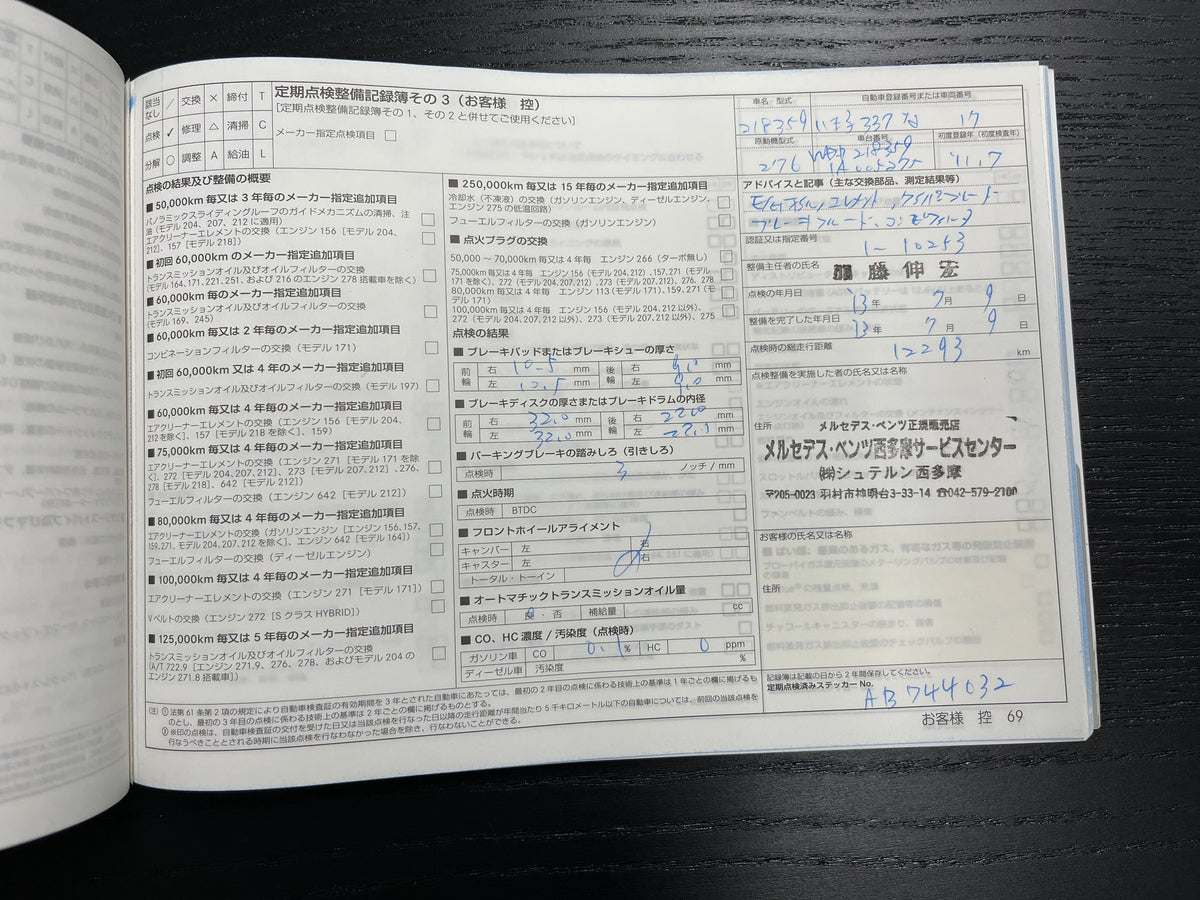 該当なし ／ 交換 × 締付 T
点検 ✓ 修理 △ 清掃 C
分解 ○ 調整 A 給油 L
定期点検整備記録簿その3（お客様 控）
[定期点検整備記録簿その1、その2と併せてご使用ください]
メーカー指定点検項目
点検の結果及び整備の概要
■ 50,000km 毎又は 3 年毎のメーカー指定追加項目
パノラミックスライディングルーフのガイドメカニズムの清掃、注
油（モデル 204、207、212 に適用）
エアクリーナーエレメントの交換（エンジン 156［モデル 204、
212］、157［モデル 218］）
■ 初回 60,000km のメーカー指定追加項目
トランスミッションオイル及びオイルフィルターの交換
（モデル 164、171、221、251、および 216 のエンジン 278 搭載車を除く）
■ 60,000km 毎のメーカー指定追加項目
トランスミッションオイル及びオイルフィルターの交換
（モデル 169、245）
■ 60,000km 毎又は 2 年毎のメーカー指定追加項目
コンビネーションフィルターの交換（モデル 171）
■ 初回 60,000km 又は 4 年のメーカー指定追加項目
トランスミッションオイル及びオイルフィルターの交換（モデル 197）
■ 60,000km 毎又は 4 年毎のメーカー指定追加項目
エアクリーナーエレメントの交換（エンジン 156［モデル 204、
212 を除く］、157［モデル 218 を除く］、159）
■ 75,000km 毎又は 4 年毎のメーカー指定追加項目
エアクリーナーエレメントの交換（エンジン 271［モデル 171 を除
く］、272［モデル 204、207、212］、273［モデル 207、212］、276、
278［モデル 218］、642［モデル 212］）
フューエルフィルターの交換（エンジン 642［モデル 212］）
■ 80,000km 毎又は 4 年毎のメーカー指定追加項目
エアクリーナーエレメントの交換（ガソリンエンジン［エンジン 156、157、
159、271、モデル 204、207、212 を除く］、エンジン 642［モデル 164］）
フューエルフィルターの交換（ディーゼルエンジン）
■ 100,000km 毎又は 4 年毎のメーカー指定追加項目
エアクリーナーエレメントの交換（エンジン 271［モデル 171］）
V ベルトの交換（エンジン 272［S クラス HYBRID］）
■ 125,000km 毎又は 5 年毎のメーカー指定追加項目
トランスミッションオイル及びオイルフィルターの交換
（A/T 722.9［エンジン 271.9、276、278、およびモデル 204 の
エンジン 271.8 搭載車］）
■ 250,000km 毎又は 15 年毎のメーカー指定追加項目
冷却水（不凍液）の交換（ガソリンエンジン、ディーゼルエンジン、
エンジン 275 の低温回路）
フューエルフィルターの交換（ガソリンエンジン）
■ 点火プラグの交換
50,000 〜 70,000km 毎又は 4 年毎 エンジン 266（ターボ無し）
75,000km 毎又は 4 年毎 エンジン 156（モデル 204、212）、157、271（モデル
171 を除く）、272（モデル 204、207、212）、273（モデル 207、212）、276、278
80,000km 毎又は 4 年毎 エンジン 113（モデル 171）、159、271（モデ
ル 171）
100,000km 毎又は 4 年毎 エンジン 156（モデル 204、212 以外）、
272（モデル 204、207、212 以外）、273（モデル 207、212 以外）、275
点検の結果
■ ブレーキパッドまたはブレーキシューの厚さ
前輪 右 10.5 mm 後輪 右 9.0 mm
左 10.5 mm 左 9.0 mm
■ ブレーキディスクの厚さまたはブレーキドラムの内径
前輪 右 32.0 mm 後輪 右 22.0 mm
左 32.0 mm 左 22.1 mm
■ パーキングブレーキの踏みしろ（引きしろ）
点検時 3 ノッチ / mm
■ 点火時期
点検時 BTDC
■ フロントホイールアライメント
キャンバー 左 右
キャスター 左 右
トータル・トーイン
■ オートマチックトランスミッションオイル量
点検時 良・否 補給量 cc
■ CO、HC 濃度 / 汚染度（点検時）
ガソリン車 CO 0.1 % HC 0 ppm
ディーゼル車 汚染度 %
車名・型式 自動車登録番号または車両番号
218359 337 な 17
原動機型式 車台番号 初度登録年（初度検査年）
276 WDD 218359 '11.7
1A 005275
アドバイスと記事（主な交換部品、測定結果等）
E/gオイル、エレメント、ワイパーブレード
ブレーキフルード、コンビフィルタ
認証又は指定番号
1-10253
整備主任者の氏名 藤 伸 宏
点検の年月日 '13 年 7 月 9 日
整備を完了した年月日 '13 年 7 月 9 日
点検時の総走行距離 12293 km
点検整備を実施した者の氏名又は名称
住所
メルセデス・ベンツ正規販売店
メルセデス・ベンツ西多摩サービスセンター
㈱シュテルン西多摩
〒205-0023 羽村市神明台3-33-14 ☎042-579-2100
お客様の氏名又は名称
住所
記録簿は記載の日から 2 年間保存してください。
定期点検済みステッカー No.
AB744032
（注）①法第 61 条第 2 項の規定により自動車検査証の有効期間を 3 年とされた自動車にあたっては、最初の 2 年目の点検に係わる技術上の基準は 1 年ごとの欄に掲げるも
のとし、最初の 3 年目の点検に係わる技術上の基準は 2 年ごとの欄に掲げるものとする。
②※印の点検は、自動車検査証の交付を受けた日又は当該点検を行なった日以降の走行距離が年間当たり 5 千キロメートル以下の自動車については、前回の当該点検を
行なうべきこととされる時期に当該点検を行なわなかった場合を除き、行なわないことができる。
お客様 控 69